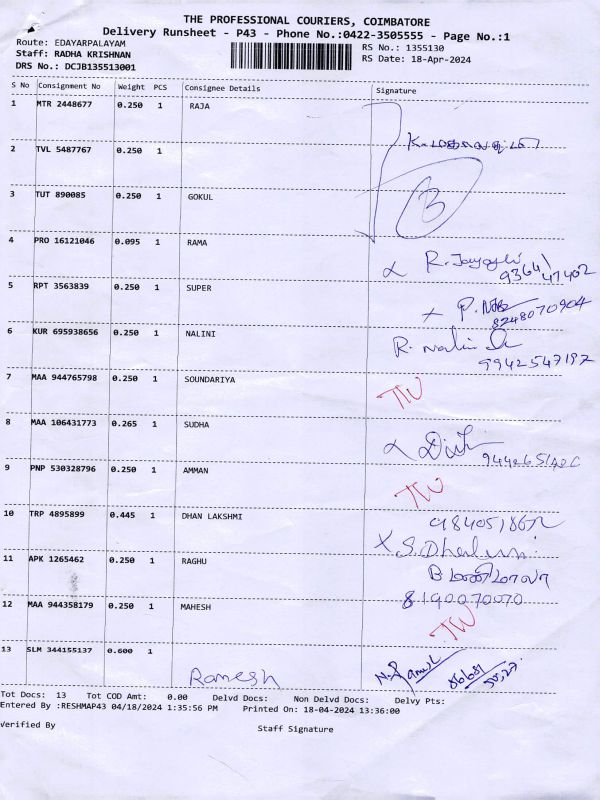 THE PROFESSIONAL COURIERS, COIMBATORE
Delivery Runsheet - P43 - Phone No.:0422-3505555 - Page No.:1
Route: EDAYARPALAYAM
Staff: RADHA KRISHNAN
DRS No.: DCJB135513001
RS No.: 1355130
RS Date: 18-Apr-2024
S No Consignment No Weight PCS Consignee Details Signature
1 MTR 2448677 0.250 1 RAJA
2 TVL 5487767 0.250 1
3 TUT 890085 0.250 1 GOKUL
4 PRO 16121046 0.095 1 RAMA
5 RPT 3563839 0.250 1 SUPER
8248070904
6 KUR 695938656 0.250 1 NALINI
R. nalini
9942547197
7 MAA 944765798 0.250 1 SOUNDARIYA
8 MAA 106431773 0.265 1 SUDHA
9 PNP 530328796 0.250 1 AMMAN
10 TRP 4895899 0.445 1 DHAN LAKSHMI
11 APK 1265462 0.250 1 RAGHU
B மணிமாலா
12 MAA 944358179 0.250 1 MAHESH
8190070070
13 SLM 344155137 0.600 1
Ramesh
Tot Docs: 13 Tot COD Amt: 0.00 Delvd Docs: Non Delvd Docs: Delvy Pts:
Entered By :RESHMAP43 04/18/2024 1:35:56 PM Printed On: 18-04-2024 13:36:00
Verified By
Staff Signature